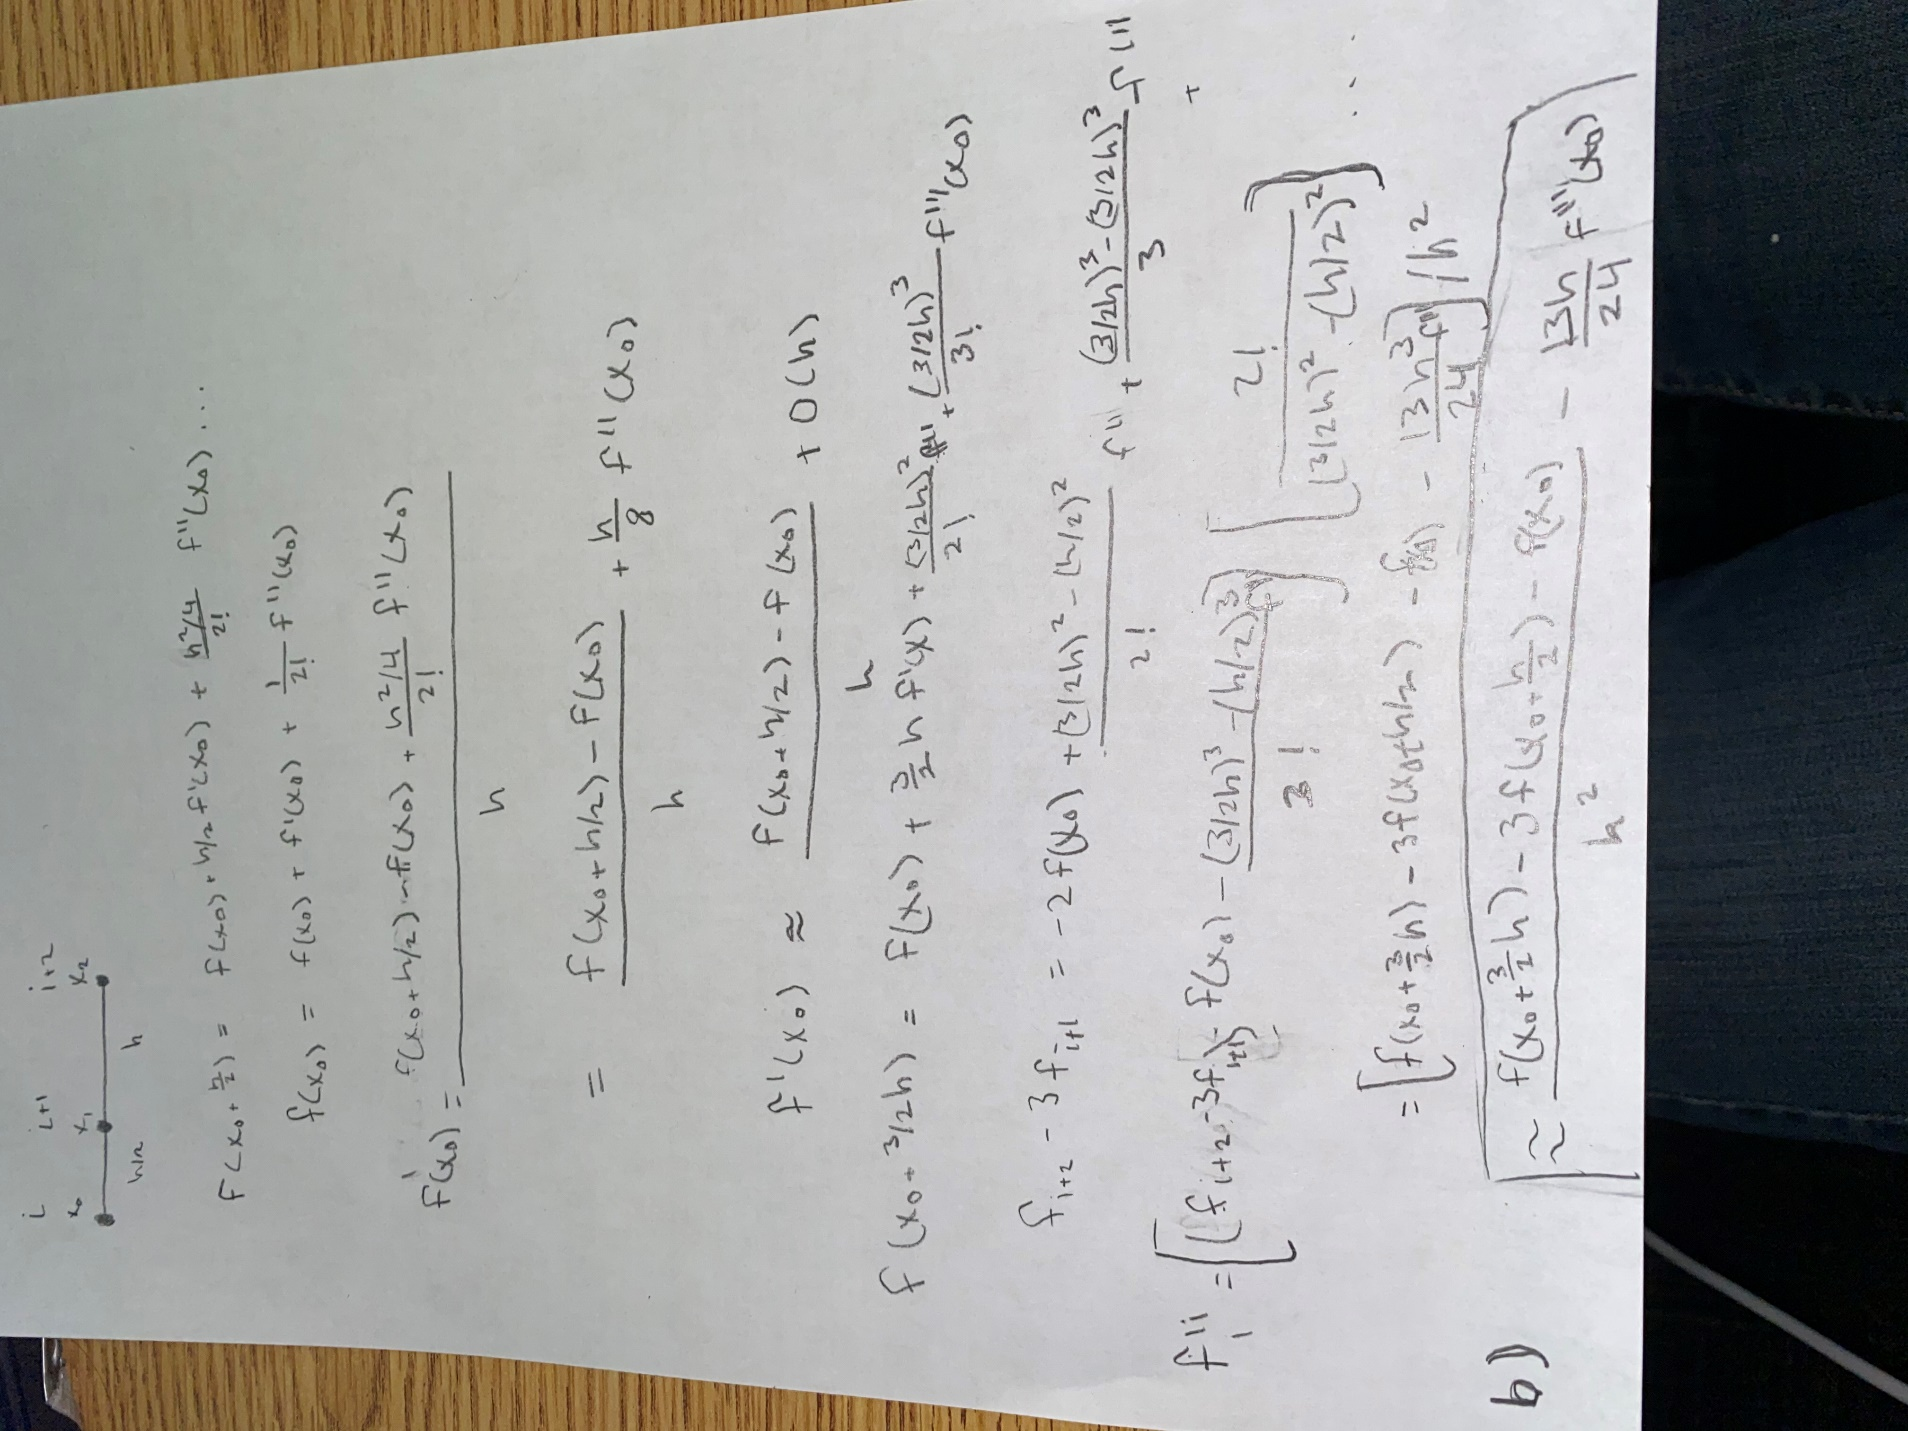 i i+1 i+2
x₀ x₁ x₂
h/2 h
f(x₀+h/2) = f(x₀)+h/2 f'(x₀) + (h²/4)/2! f''(x₀)...
f(x₀) = f(x₀) + f'(x₀) + 1/2! f''(x₀)
f'(x₀) = (f(x₀+h/2) - f(x₀) + (h²/4)/2! f''(x₀)) / h
= (f(x₀+h/2) - f(x₀)) / h + h/8 f''(x₀)
f'(x₀) ≈ (f(x₀+h/2) - f(x₀)) / h + O(h)
f(x₀+3/2h) = f(x₀) + 3/2 h f'(x) + (3/2h)²/2! f'' + (3/2h)³/3! f'''(x₀)
f_{i+2} - 3f_{i+1} = -2f(x₀) + ((3/2h)² - (h/2)²)/2! f'' + ((3/2h)³ - (3/2h)³)/3 f''' +
f''_i = [(f_{i+2} - 3f_{i+1}) - f(x₀) - ((3/2h)³ - (h/2)³)/3! f'''] [2!/((3/2h)² - (h/2)²)] ...
= [f(x₀+3/2h) - 3f(x₀+h/2) - f(x₀) - 13h³/24 f'''] / h²
b) ≈ (f(x₀+3/2h) - 3f(x₀+h/2) - f(x₀)) / h² - 13h/24 f'''(x₀)